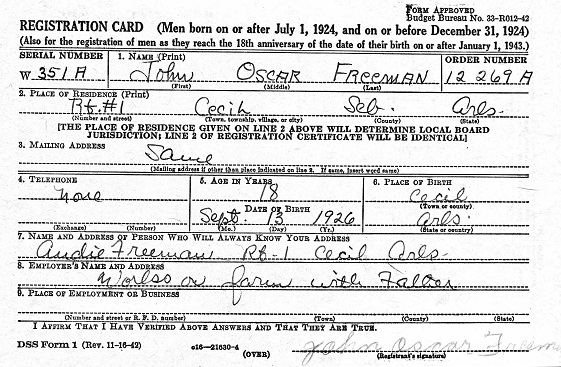 FORM APPROVED
Budget Bureau No. 33-R012-42
REGISTRATION CARD (Men born on or after July 1, 1924, and on or before December 31, 1924)
(Also for the registration of men as they reach the 18th anniversary of the date of their birth on or after January 1, 1943.)
SERIAL NUMBER 1. NAME (Print) ORDER NUMBER
W 351A John Oscar Freeman 12 269 A
(First) (Middle) (Last)
2. PLACE OF RESIDENCE (Print)
Rt. #1 Cecil Seb. Arks.
(Number and street) (Town, township, village, or city) (County) (State)
[THE PLACE OF RESIDENCE GIVEN ON LINE 2 ABOVE WILL DETERMINE LOCAL BOARD
JURISDICTION; LINE 2 OF REGISTRATION CERTIFICATE WILL BE IDENTICAL]
3. MAILING ADDRESS
Same
[Mailing address if other than place indicated on line 2. If same, insert word same]
4. TELEPHONE 5. AGE IN YEARS 6. PLACE OF BIRTH
none 18 Cecil
DATE OF BIRTH (Town or county)
Sept. 13 1926 Arks.
(Exchange) (Number) (Mo.) (Day) (Yr.) (State or country)
7. NAME AND ADDRESS OF PERSON WHO WILL ALWAYS KNOW YOUR ADDRESS
Freeman Rt-1 Cecil Arks.
8. EMPLOYER'S NAME AND ADDRESS
Works on farm with Father
9. PLACE OF EMPLOYMENT OR BUSINESS
(Number and street or R. F. D. number) (Town) (County) (State)
I AFFIRM THAT I HAVE VERIFIED ABOVE ANSWERS AND THAT THEY ARE TRUE.
DSS Form 1 (Rev. 11-16-42) c16-21630-4 John Oscar Freeme
(OVER) (Registrant's signature)